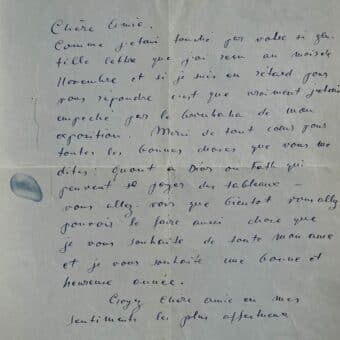 Chère Amie.
Comme j'etais touché par votre si gen
tille lettre que j'ai reçu au mois de
Novembre et si je suis en retard pour
vous repondre c'est que vraiment j'etais
empeché par le de mon
exposition. Merci de tout cœur pour
toutes les bonnes choses que vous me
dites: Quant a Dior ou Fath qui
peuvent se payer des tableaux –
vous allez voir que bientot vous allez
pouvoir le faire aussi chose que
je vous souhaite de toute mon ame
et je vous souhaite une bonne et
heureuse année.
Croyez Chère amie en mes
sentiments les plus affectueux